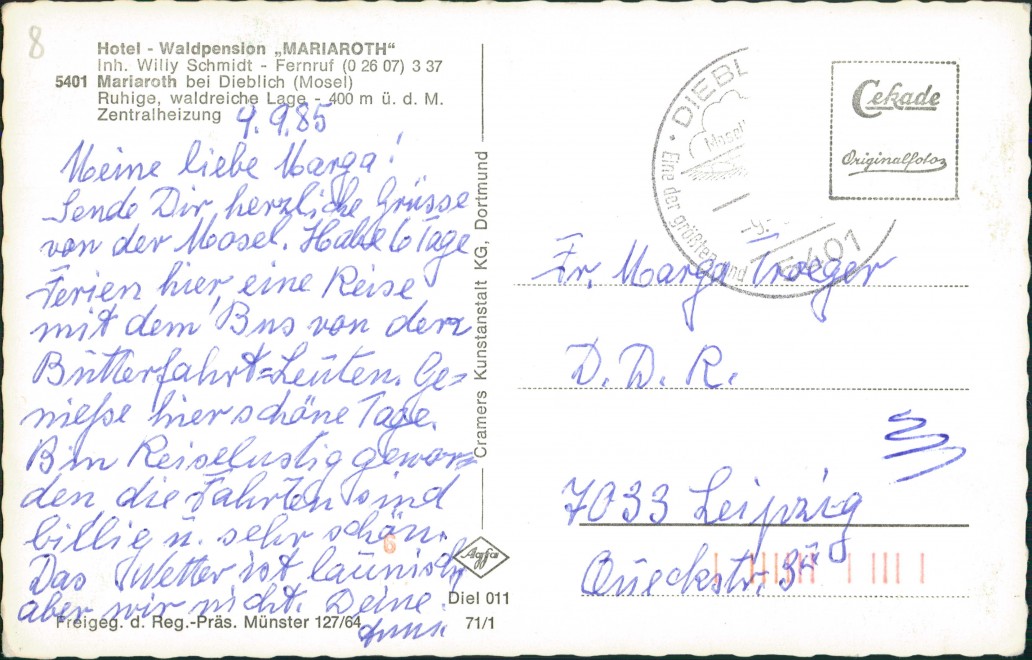 8
Hotel - Waldpension „MARIAROTH“
Inh. Willy Schmidt - Fernruf (0 26 07) 3 37
5401 Mariaroth bei Dieblich (Mosel)
Ruhige, waldreiche Lage - 400 m ü. d. M.
Zentralheizung
4.9.85
Meine liebe Marga!
Sende Dir herzliche Grüsse
von der Mosel. Habe 6 Tage
Ferien hier, eine Reise
mit dem Bus von den
Butterfahrt=Leuten. Ge=
nieße hier schöne Tage.
Bin Reiselustig gewor=
den, die Fahrten sind
billig u. sehr schön.
Das Wetter ist launisch
aber wir nicht. Deine
Freigeg. d. Reg.-Präs. Münster 127/64
Cramers Kunstanstalt KG, Dortmund
6
Agfa
Diel 011
71/1
DIEBL
Mosel
Eine der größten
und
5401
Cekade
Originalfoto
Fr. Marga Troeger
D. D. R.
7033 Leipzig
Queckstr. 3